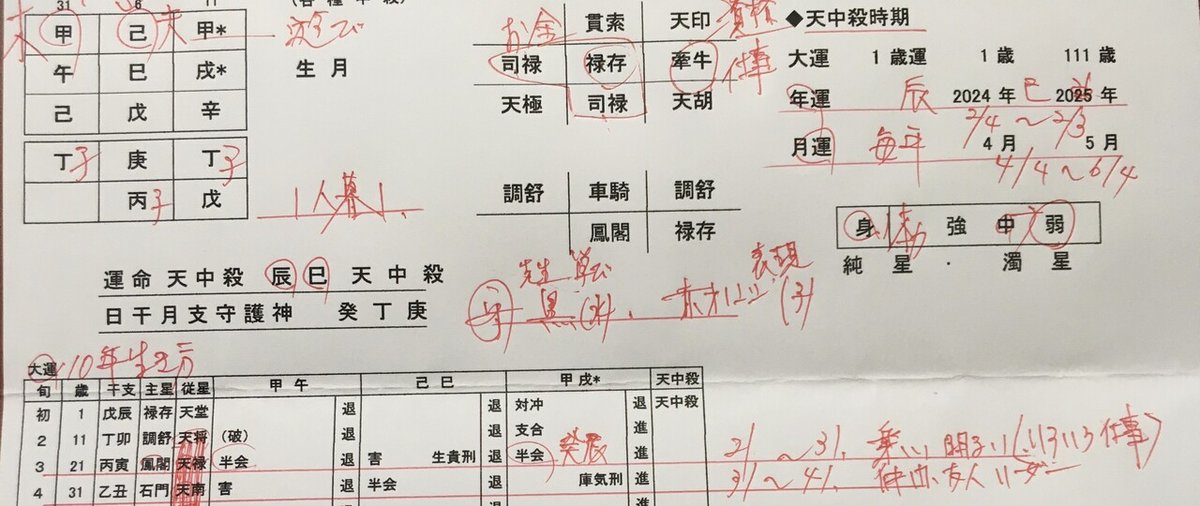 31 6 11
甲 己 甲*
午 巳 戌*
己 戊 辛
丁子 庚 丁子
丙子 戊
遊び
生月
1人暮し
運命天中殺 辰巳 天中殺
日干月支守護神 癸丁庚
お金 貫索 天印
司禄 禄存 牽牛 仕事
天極 司禄 天胡
調舒 車騎 調舒
鳳閣 禄存
表現
黒(水)
◆天中殺時期
大運 1歳運 1歳 111歳
年運 辰 2024年 巳 2025年
2/4～2/3
月運 毎年 4月 5月
4/4～6/4
身 強 中 弱
純星・濁星
大運 10年
旬 歳 干支 主星 従星 甲午 己巳 甲戌* 天中殺
初 1 戊辰 禄存 天堂 退 退 対冲 退 天中殺
2 11 丁卯 調舒 天将 (破) 退 退 支合 進
3 21 丙寅 鳳閣 天禄 半会 退 害 生貴刑 退 半会 進
4 31 乙丑 石門 天南 害 退 半会 退 庫気刑 進
21～31 楽しい 明るい(いろいろ仕事)
31～41 仲間、友人